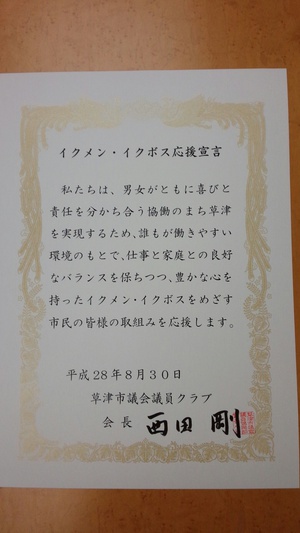 イクメン・イクボス応援宣言
私たちは、男女がともに喜びと
責任を分かち合う協働のまち草津
を実現するため、誰もが働きやすい
環境のもとで、仕事と家庭との良好
なバランスを保ちつつ、豊かな心を
持ったイクメン・イクボスをめざす
市民の皆様の取組みを応援します。
平成28年8月30日
草津市議会議員クラブ
会長 西田 剛